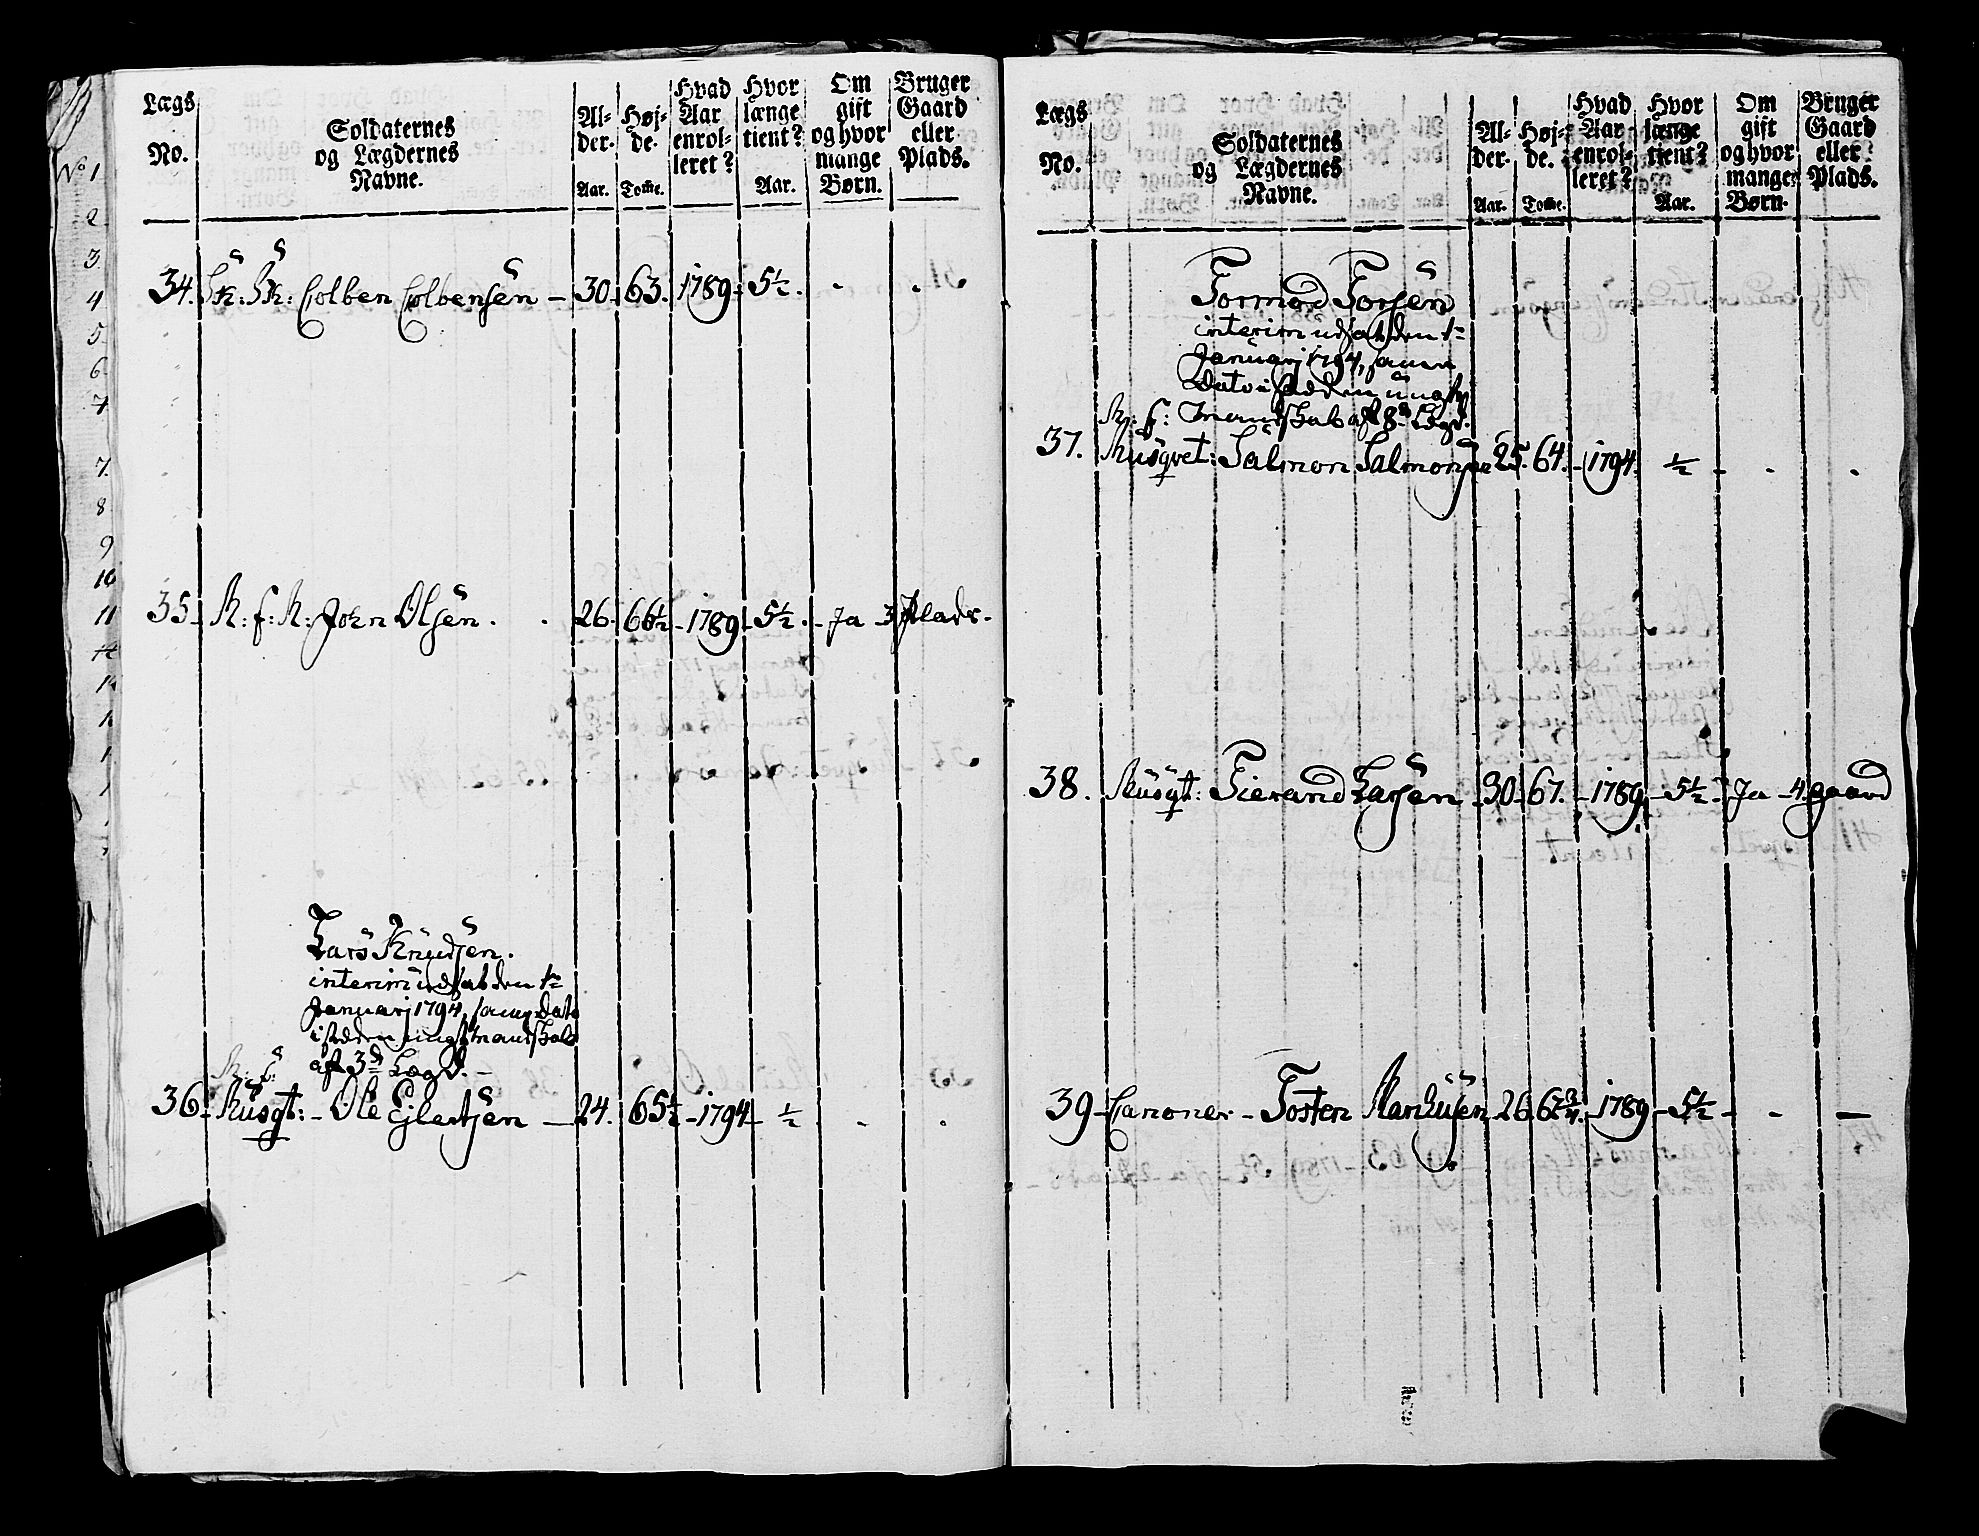 Lægs No.
Soldaternes og Lægdernes Navne.
Al- der. Aar.
Høj- de. Tom̅e.
Hvad Aar enrol- leret?
Hvor længe tient? Aar.
Om gift og hvor mange Børn.
Bruger Gaard eller Plads.
34. Colben Colbensen — 30. 63. 1789 5½. - . .
35. R: f: R: John Olsen. . 26. 66½ - 1789 5½. - Ja - 3 Plads.
Lars Knudsen.
interim udsat den 1=
Januarj 1794, samme dato
i stæden
af 3d Lægd. —
R: f:
36 - Musqt: - Ole Ejlertsen — 24. 65½ - 1794 - ½ . .
Lægs No.
Soldaternes og Lægdernes Navne.
Al- der. Aar.
Høj- de. Tom̅e.
Hvad Aar enrol- leret?
Hvor længe tient? Aar.
Om gift og hvor mange Børn.
Bruger Gaard eller Plads.
Tormod Torsen
interim udsat den 1=
Januarj 1794, samme
dato i stæden
R: f: mandskab af 8d Lægd.
37. Musqvet: Salmon Salmonsen 25. 64. - 1794. ½ - . .
38. Musqt: Tierand Larsen - 30 - 67. - 1789 - 5½ - Ja - 4 gaard
39 - Canoner - Tosten 26. 67¾. - 1789 - 5½ - - —
No 1
2
3.
4
5
6
7
7.
8
9
10
11